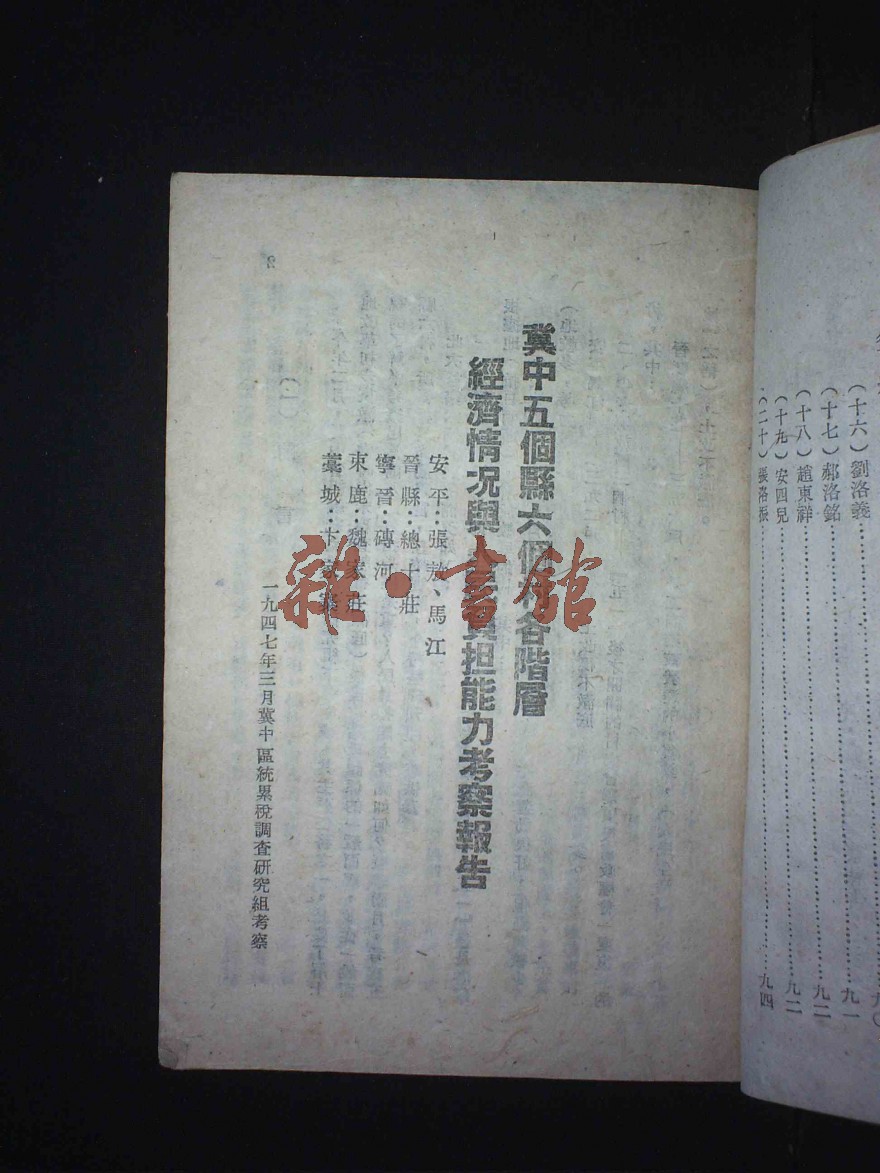 (十六)劉洛義……九〇
(十七)郝洛銘……九一
(十八)趙東祥……九二
(十九)安四兒……九二
(二十)張洛振……九四
冀中五個縣六個村各階層
經濟情况與負担能力考察報告
安平：張敖、馬江
晉縣：總十莊
寧晉：磚河
束鹿：魏家莊
藁城：卞家寨
一九四七年三月冀中區統累稅調查研究組考察
雜·書館